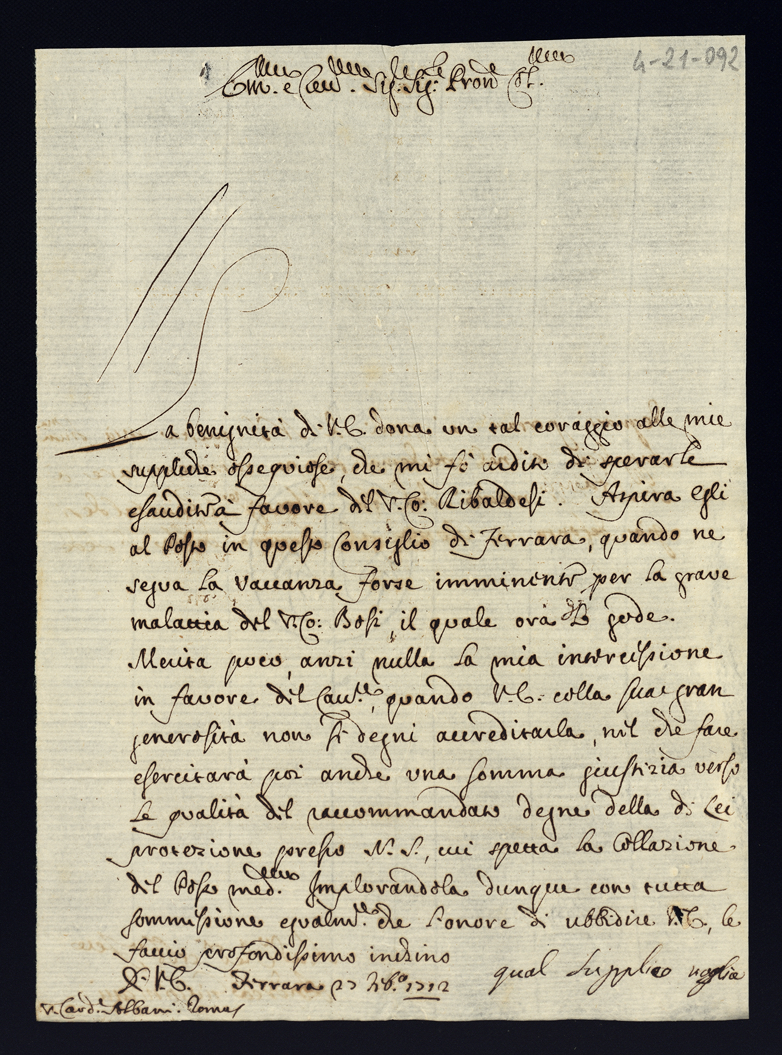 4-21-092
Em.mo e Rev.mo Sig. Sig. Pron.e Col.mo
La benignità di V.E. dona un tal coraggio alle mie
suppliche ossequiose, che mi fò ardito di sperarle
esaudite à favore del Co: Ribaldesi. Aspira egli
al Posto in questo Consiglio di Ferrara, quando ne
segua la vaccanza forse imminente per la grave
malattia del Co: Bosi, il quale ora lo gode.
Merita poco, anzi nulla la mia intercessione
in favore del Cav.re, quando V.E. colla sua gran
generosità non si degni accreditarla, nel che fare
esercitarà poi anche una somma giustizia verso
le qualità del raccommandato degne della di Lei
protezione presso N.S., cui spetta la Collazione
del Posto med.mo Implorandola dunque con tutta
sommissione egualm.te che l'onore di ubbidire V.E., le
faccio profondissimo inchino
D. V.E. Ferrara 27 Feb.o 1712 qual supplico voglia
S. Card. Albani. Roma